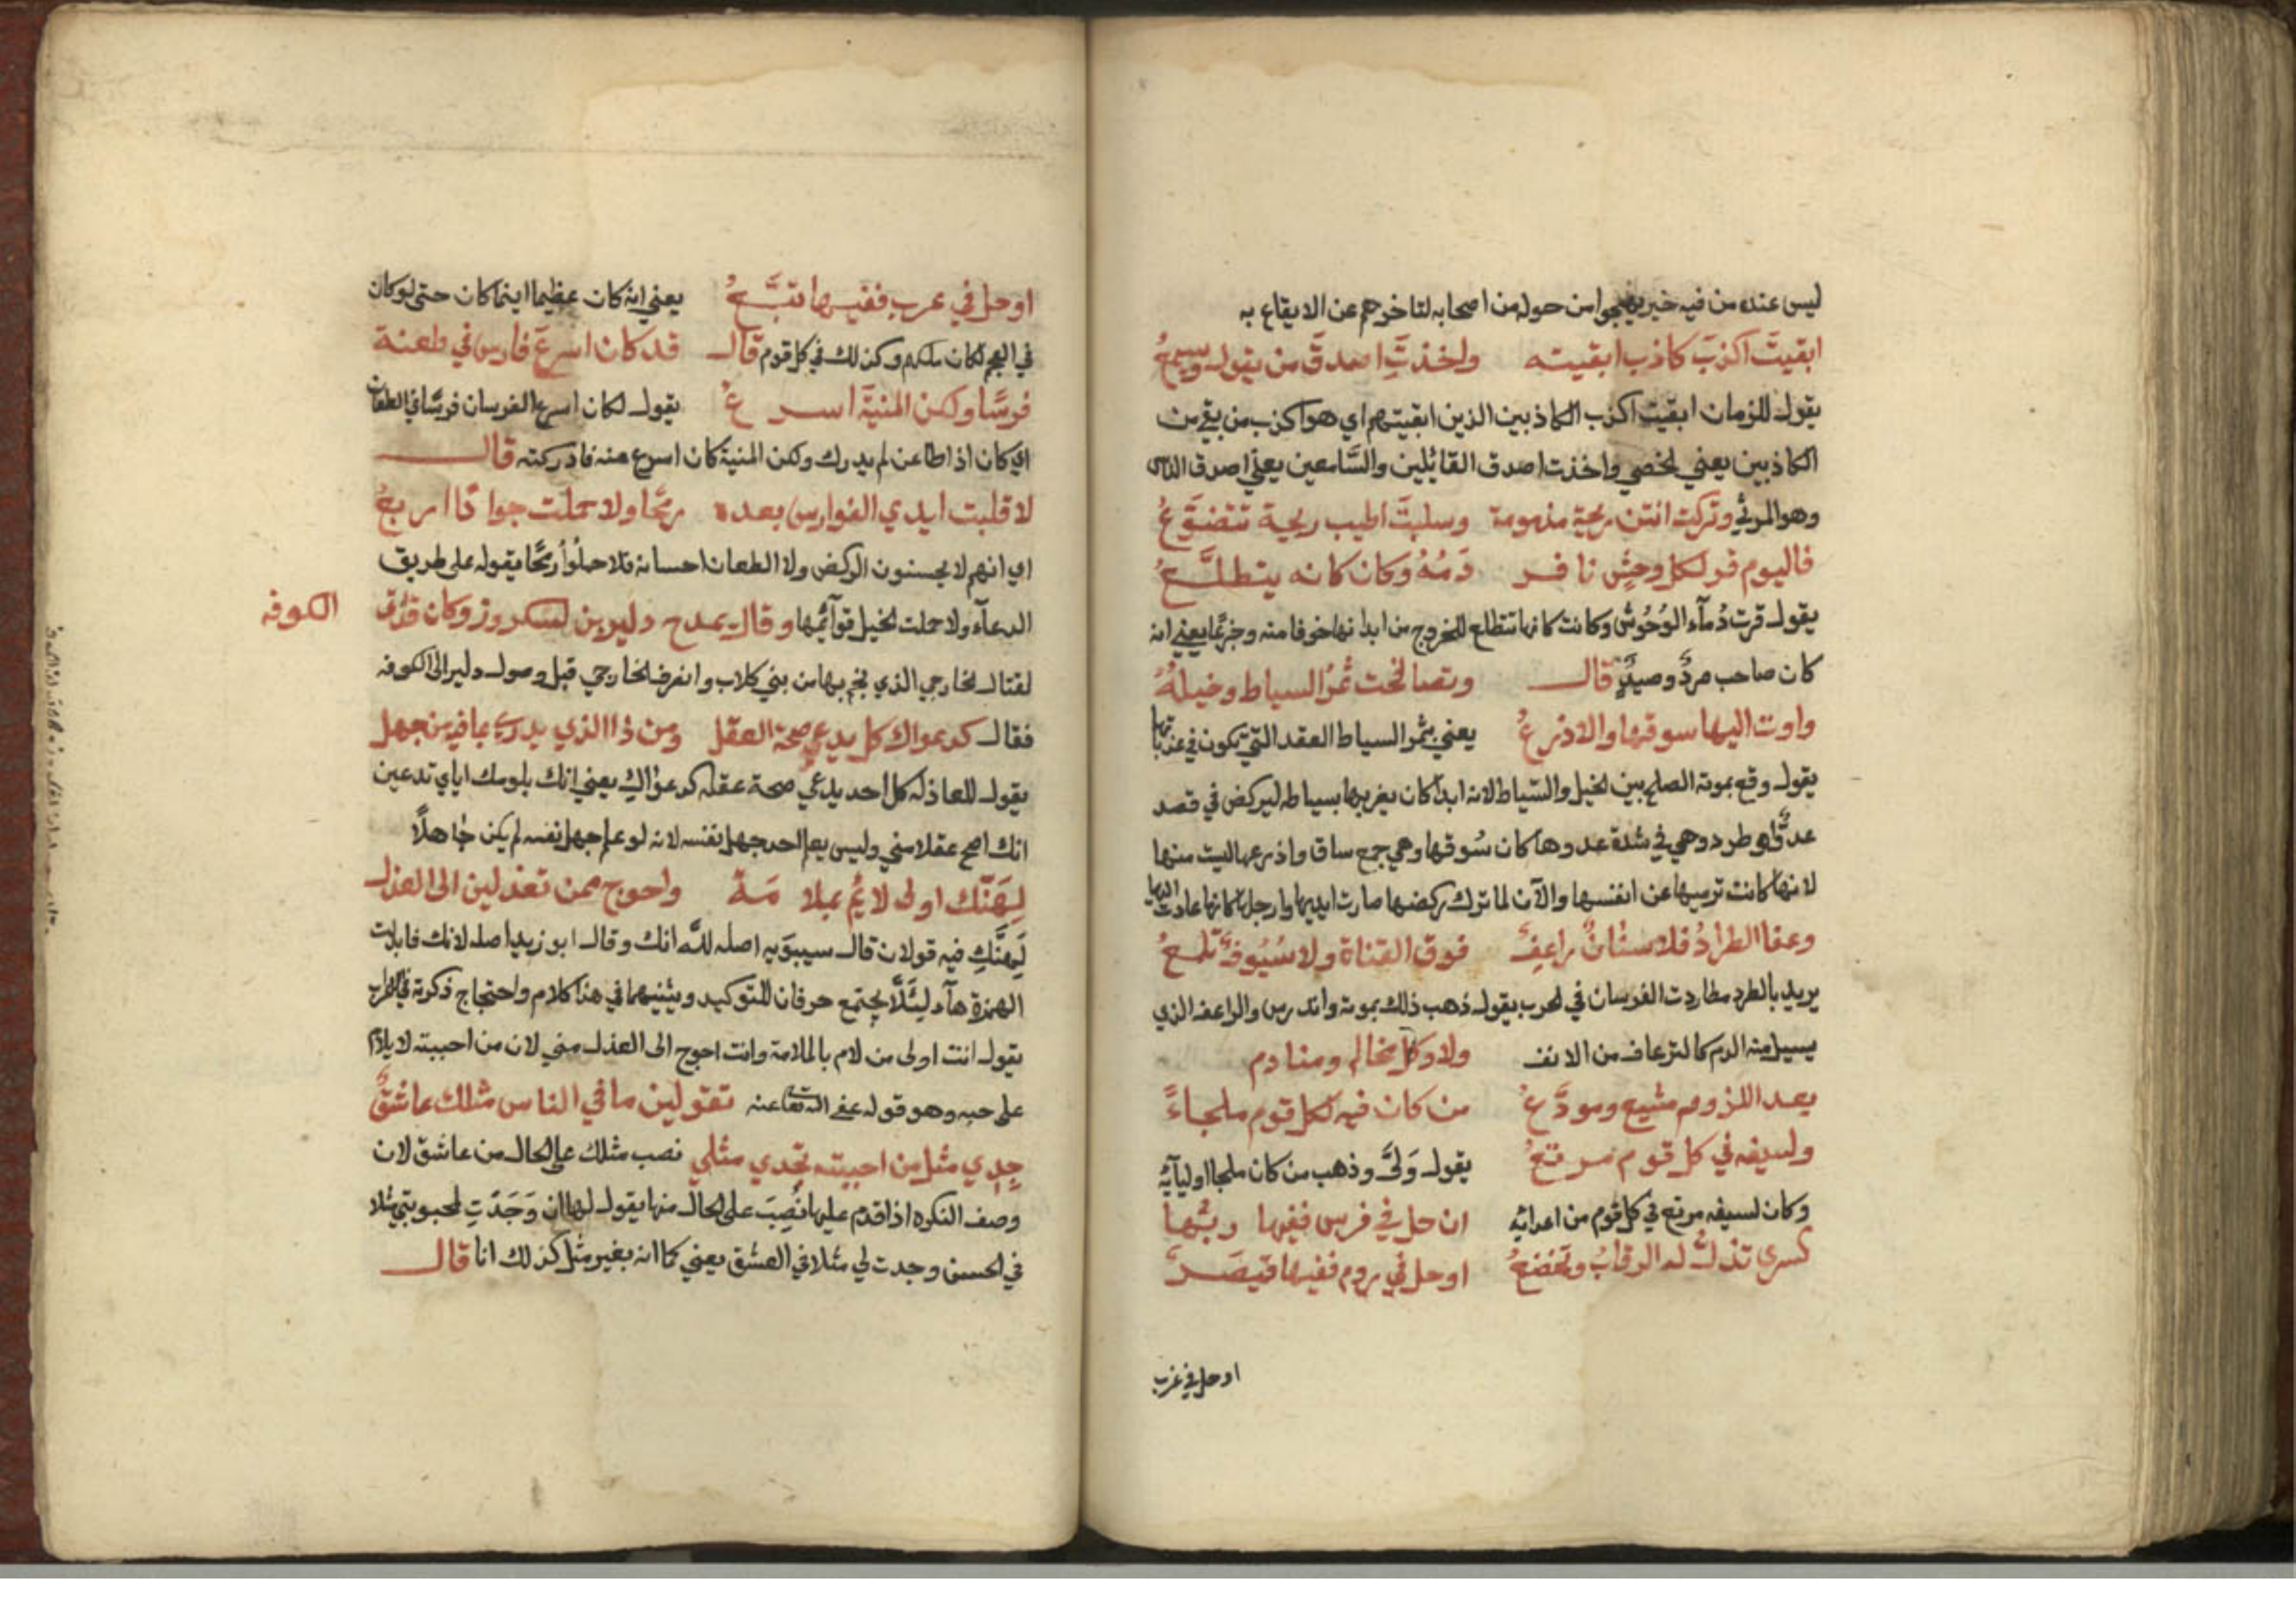 ليس عنده من فيه خير من حوله من اصحابه لتاخرهم عن الايقاع به
ابقيتَ اكذبَ كاذب ابقيته واخذتَ اصدقَ من يقول ويسمعُ
يقول للزمان ابقيت اكذب الكاذبين الذين ابقيتهم اي هو اكذب من بقي من
الكاذبين يعني لخصي واخذت اصدق القائلين والسَّامعين يعني اصدق الناس
وهو المرثي وتركت انتن ريحة مذمومة وسلبتَ اطيب ريحة تتضوَّعُ
فاليوم قر لكل وحشٍ نافر دَمُهُ وكان كانه يتطلَّعُ
يقول قرت دُمآء الوُحُوش وكانت كانها تتطلع للخروج من ابدانها خوفا منه وجزعًا يعني انه
كان صاحب طردٍ وصيدٍ قال وتصالحت ثمرُ السياط وخيلهُ
واوت اليها سوقها والاذرعُ يعني بثمر السياط العقد التي تكون في عذباتها
يقول وقع بموته الصلح بين الخيل والسّياط لانه ابدًا كان يضربها بسياطه ليركض في قصد
عدوٍّ او طرد وهي في شدة عدوها كان سُوقها وهي جمع ساق واذرعها ليست منها
لانها كانت ترميها عن انفسها والآن لما ترك ركضها صارت ايديها وارجلها كانها عادت اليها
وعفا الطرادُ فلا سنانٌ راعفٌ فوق القناة ولا سُيُوفٌ تلمعُ
يريد بالطرد مطاردت الفرسان في الحرب يقول ذهب ذلك بموته واندرس والراعف الذي
يسيل منه الدم كالترعاف من الانف ولا وكل مخالم ومنادم
بعد اللزوم مشيع ومودَّعُ من كان فيه لكل قوم ملجاءً
ولسيفه في كل قوم مرتعُ يقول وَلىَّ وذهب من كان ملجا اوليآئه
وكان لسيفه مرتع في كل قوم من اعدائه ان حل في فرس ففيها ربُّها
كسرى تذلُّ له الرقابُ وتخضعُ او حل في روم ففيها قيصَرٌ
او حل في غرب
او حل في عرب ففيها تبَّعُ يعني انه كان عظيما اينما كان حتى لو كان
في العجم لكان ملكهم وكذلك في كل قوم قال قد كان اسرعَ فارس في طعنة
فرسًا ولكن المنيَّة اسرعُ يقول لكان اسرع الفرسان فرسًا في الطعان
اي كان اذا طاعن لم يدرك ولكن المنية كان اسرع منه فادركته قال
لا قلبت ايدي الفوارس بعده رمحًا ولا حملت جوادًا اربعُ
اي انهم لا يحسنون الركض ولا الطعان احسانه فلا حملُوا رمحًا يقوله على طريق
الدعآء ولا حملت الخيل قوآئمها وقال يمدح دلير بن لشكروز وكان قد اتى
الكوفه
لقتال الخارجي الذي نجم بها من بني كلاب وانصرف الخارجي قبل وصول دلير الى الكوفه
فقال كدعواك كل يدعي صحة العقل ومن ذا الذي يدري بما فيه من جهل
يقول للعاذله كل احد يدعي صحة عقله كدعواكِ يعني انك بلومك اياي تدعين
انك اصح عقلا مني وليس يعلم احد جهل نفسه لانه لو علم جهل نفسه لم يكن جاهلًا
لِهَنَّك اولى لائم بملامَة واحوج ممن تعذلين الى العذل
لَهِنَّكِ فيه قولان قال سيبوَيه اصله لله انك وقال ابو زيد اصله لانك فابدلت
الهمزة هآء ليئلَّا يجتمع حرفان للتوكيد وبينهما في هذا كلام واحتجاج ذكرته في الاعراب
يقول انت اولى من لام بالملامة وانت احوج الى العذل مني لان من احببته لا يلام
على حبه وهو قوله عفى الله تعا عنه تقولين ما في الناس مثلك عاشقٌ
جِدِي مثل من احببته تجدي مثلي نصب مثلك على الحال من عاشق لان
وصف النكره اذا قدم عليها نُصِبَ على الحال منها يقول لها ان وَجَدَتِ لمحبوبتي مثلا
في الحسن وجدت لي مثلا في العشق يعني كما انه بغير مثل كذلك انا قال